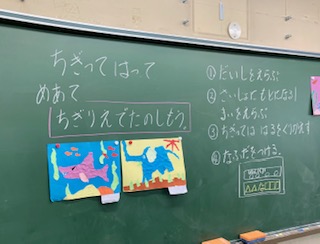 ちぎって はって
めあて
ちぎりえでたのしもう。
① だいしをえらぶ
② さいしょにもとになる
まいをえらぶ
③ ちぎっては はるをくりかえす
④ なふだをつける。